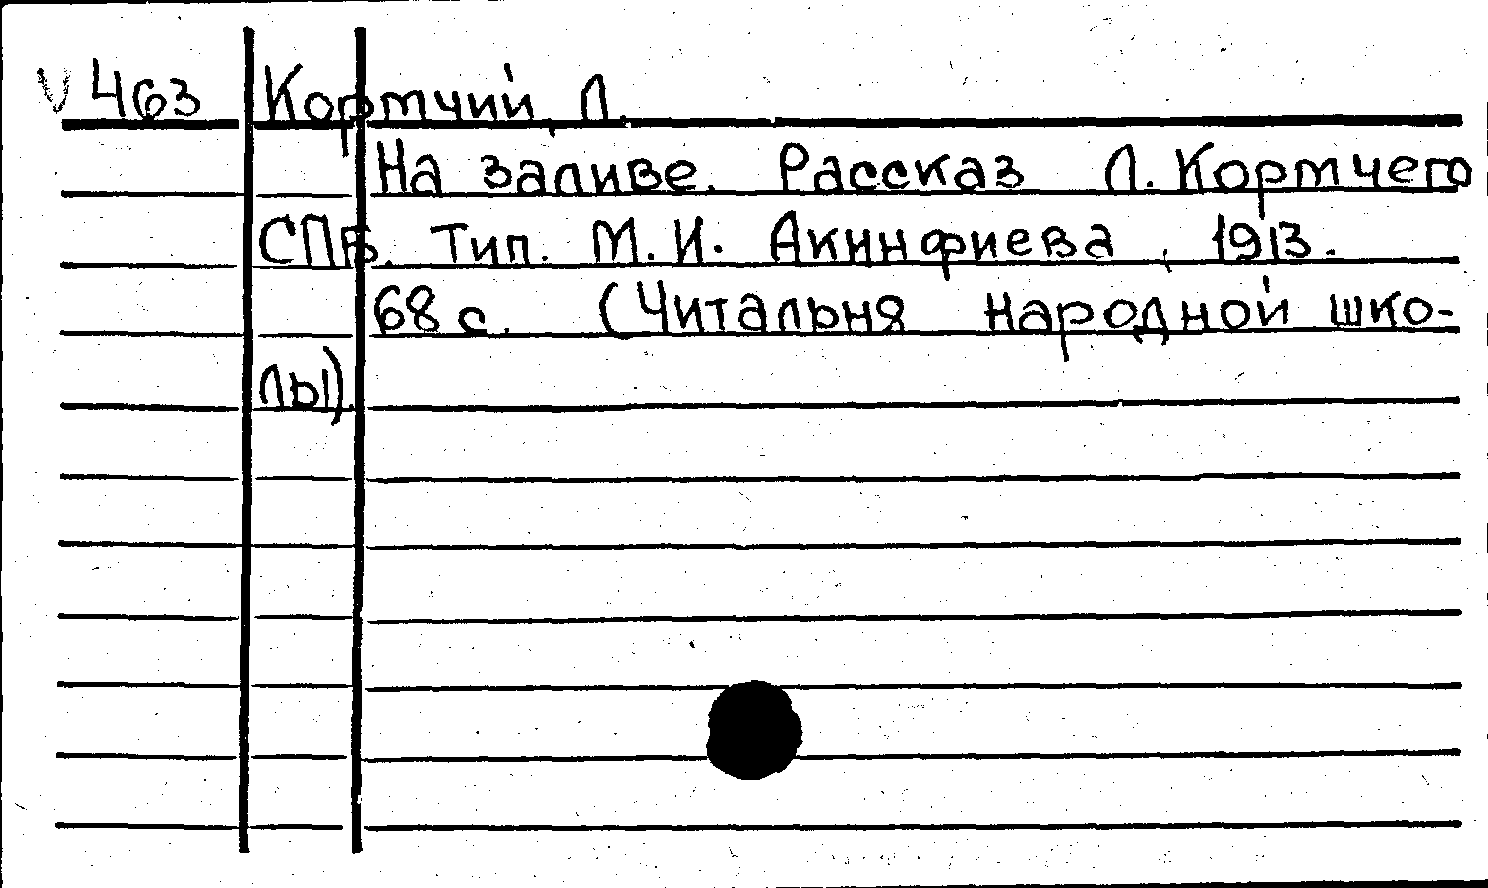 V 463 Кормчий, Л.
На заливе. Рассказ Л. Кормчего
СПБ. Тип. М. И. Акинфиева, 1913.
68 с. (Читальня народной шко-
лы).